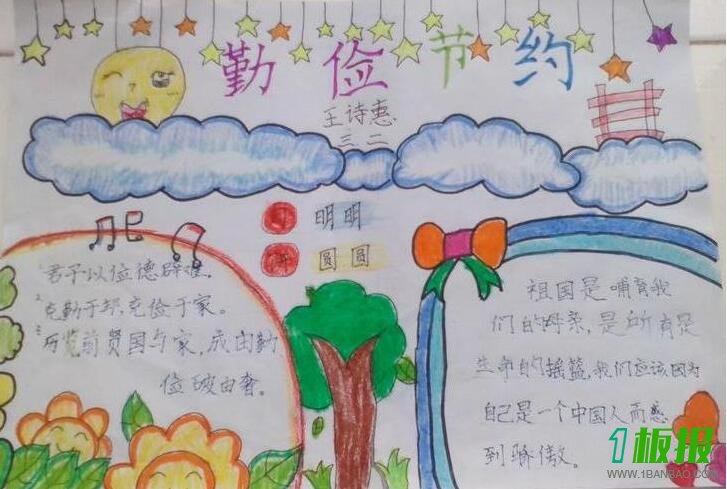 勤俭节约
王诗惠
三.二
明明
圆圆
1君子以位德辟难.
2克勤于邦,克俭于家。
3历览前贤国与家,成由勤
俭破由奢。
祖国是哺育我
们的母亲,是所有是
生命的摇篮,我们应该因为
自己是一个中国人而感
到骄傲。
1板报
WWW.1BANBAO.COM